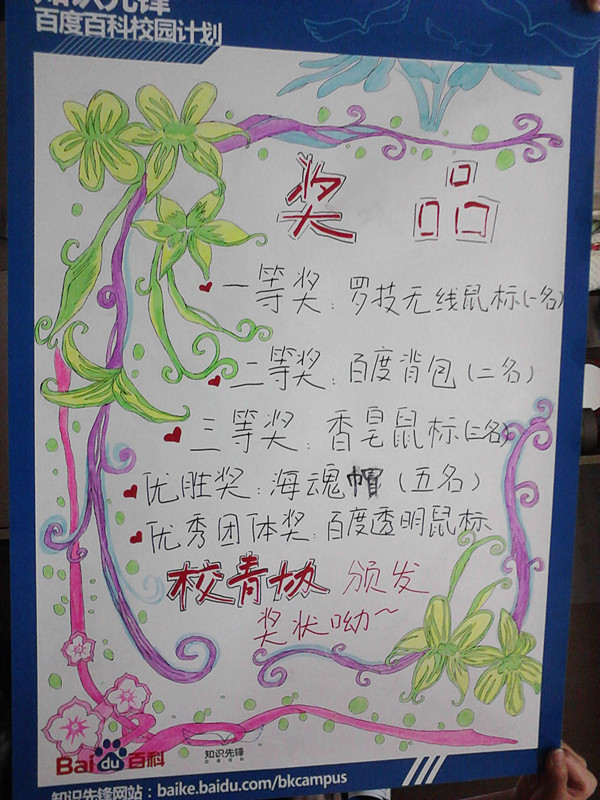 知识先锋
百度百科校园计划
奖品
一等奖：罗技无线鼠标(一名)
二等奖：百度背包(二名)
三等奖：香皂鼠标(三名)
优胜奖：海魂帽(五名)
优秀团体奖：百度透明鼠标
校青协 颁发
奖状呦~
Baidu百科 知识先锋
知识先锋网站：baike.baidu.com/bkcampus